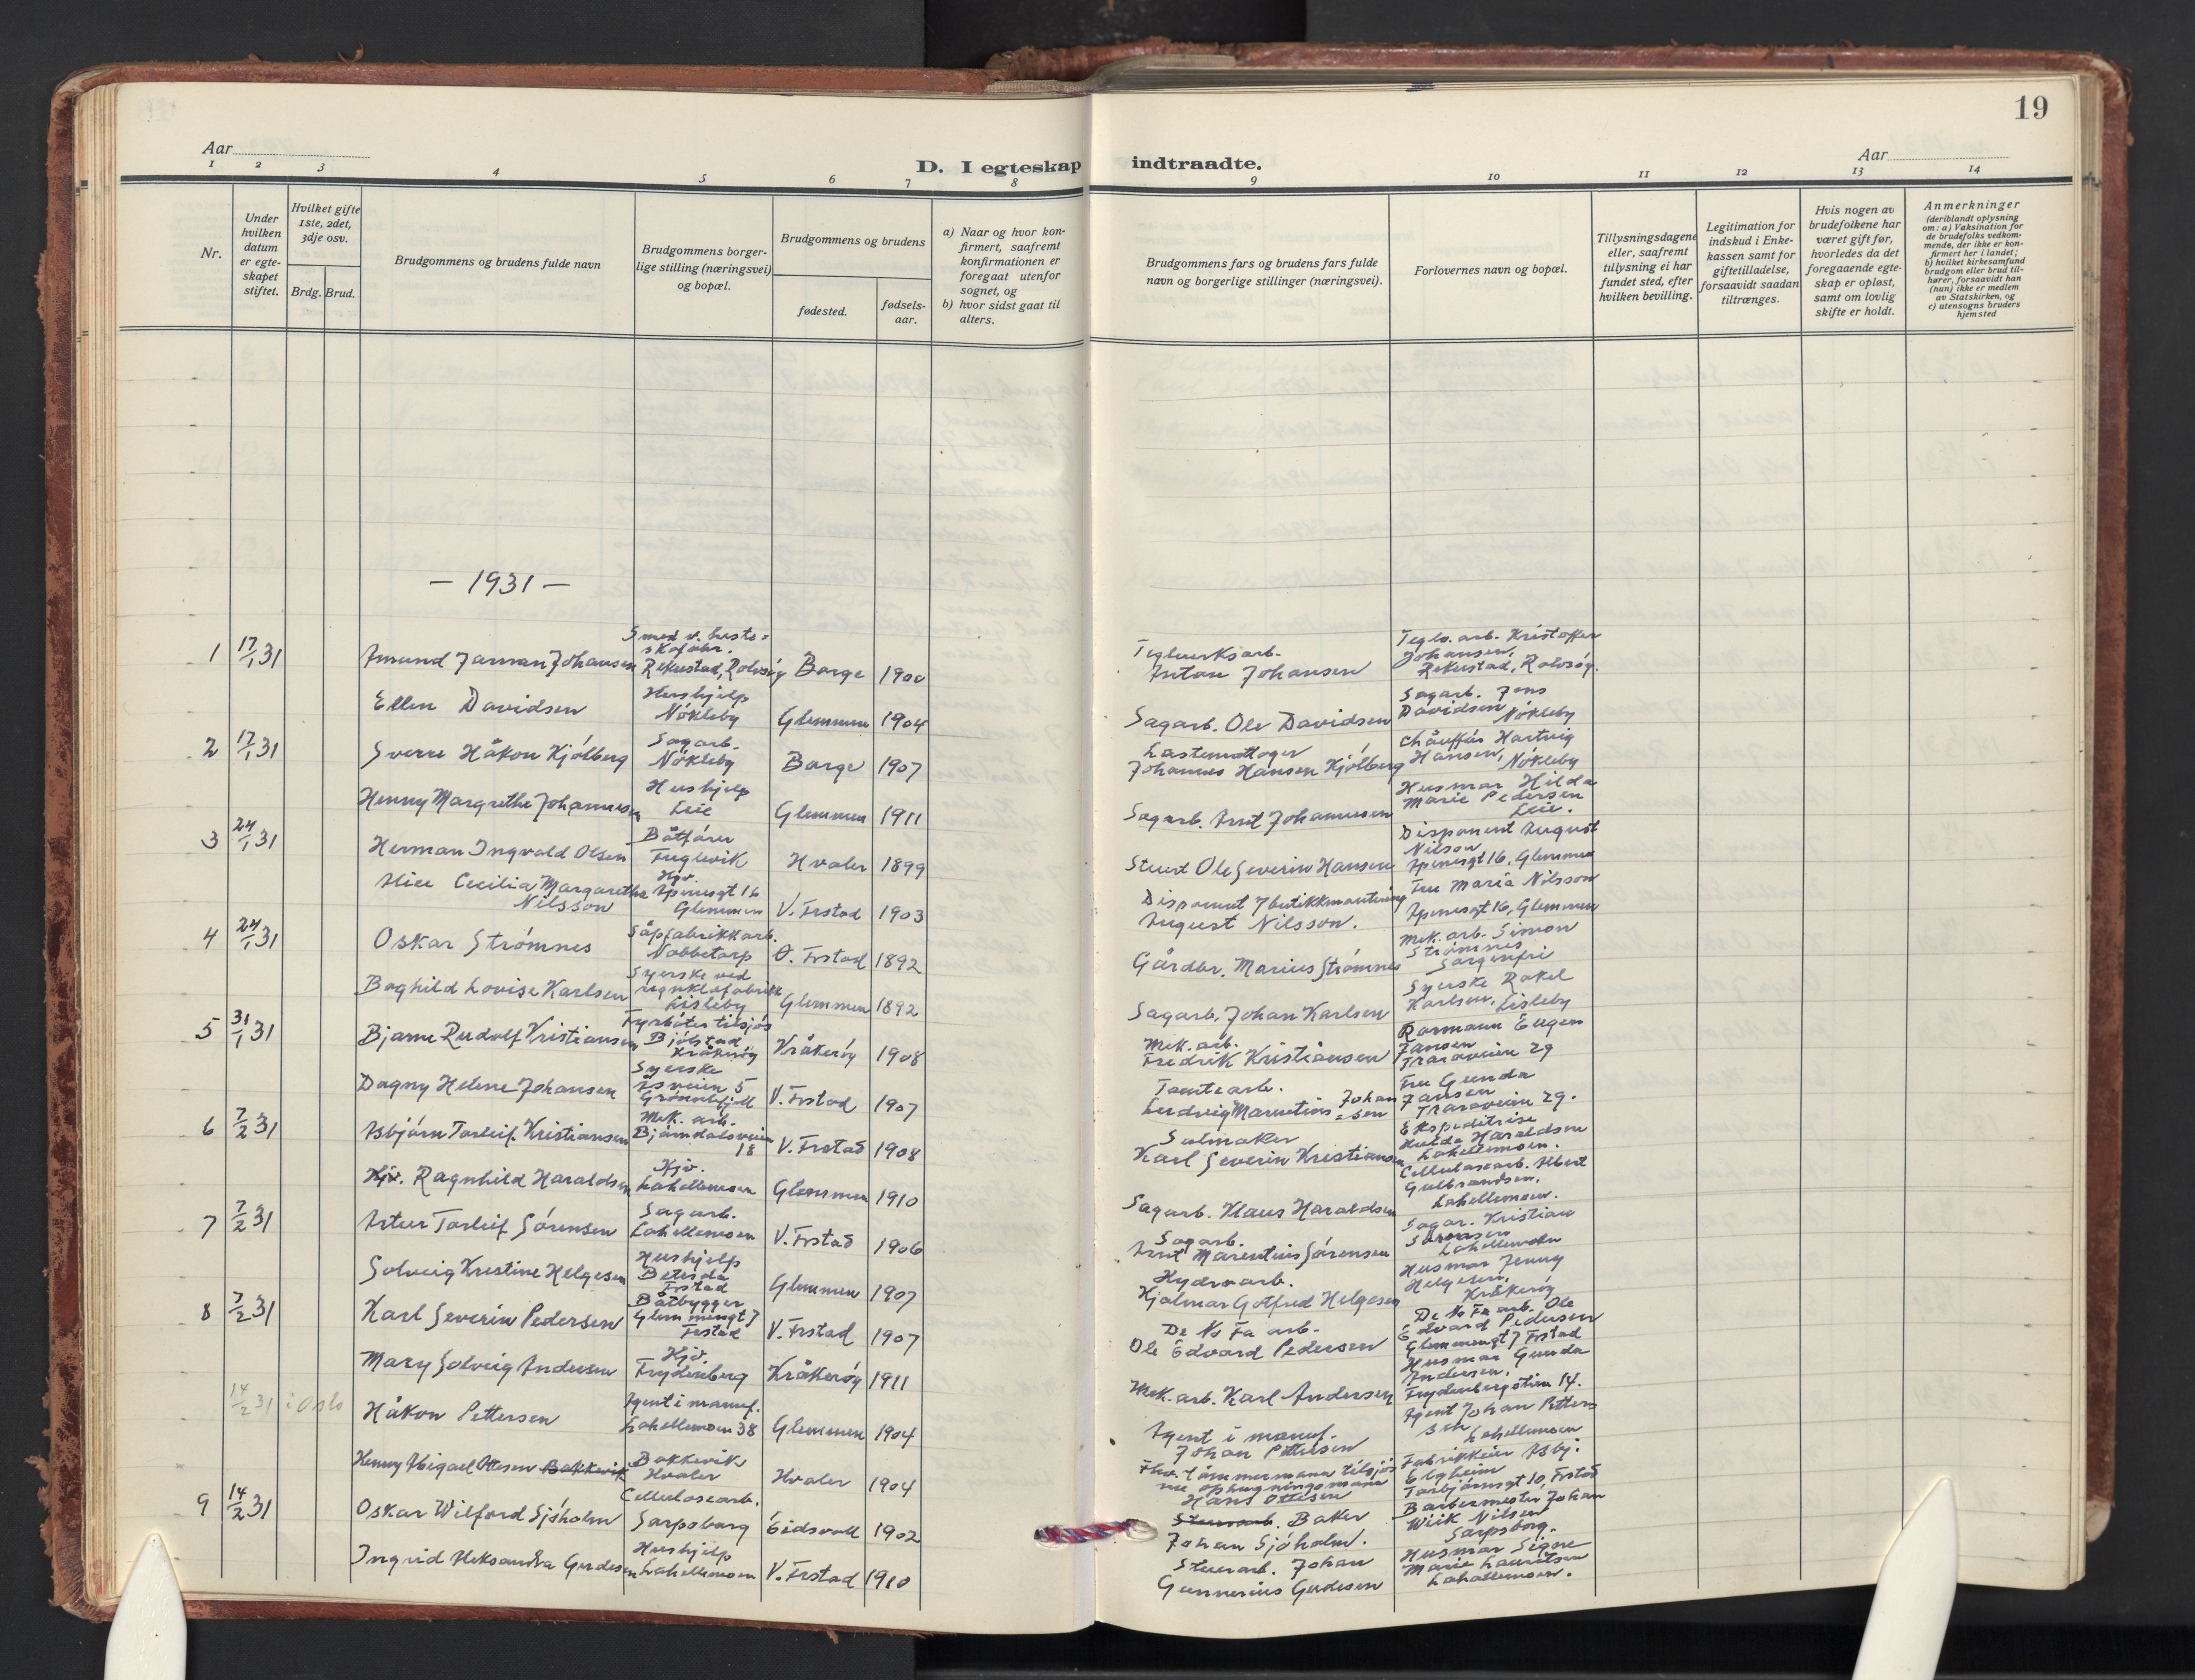 19
Aar
Aar
D. I egteskap indtraadte.
1 2 3 4 5 6 7 8 9 10 11 12 13 14
Nr.
Under hvilken datum er egteskapet stiftet.
Hvilket gifte 1ste, 2det, 3dje osv.
Brdg. Brud.
Brudgommens og brudens fulde navn
Brudgommens borgerlige stilling (næringsvei) og bopæl.
Brudgommens og brudens
fødested.
fødselsaar.
a) Naar og hvor konfirmert, saafremt konfirmationen er foregaat utenfor sognet, og
b) hvor sidst gaat til alters.
Brudgommens fars og brudens fars fulde navn og borgerlige stillinger (næringsvei).
Forlovernes navn og bopæl.
Tillysningsdagene eller, saafremt tillysning ei har fundet sted, efter hvilken bevilling.
Legitimation for indskud i Enkekassen samt for giftetilladelse, forsaavidt saadan tiltrænges.
Hvis nogen av brudefolkene har været gift før, hvorledes da det foregaaende egteskap er opløst, samt om lovlig skifte er holdt.
Anmerkninger
(deriblandt oplysning om: a) Vaksination for de brudefolks vedkommende, der ikke er konfirmert her i landet; b) hvilket kirkesamfund brudgom eller brud tilhører, forsaavidt han (hun) ikke er medlem av Statskirken, og c) utensogns bruders hjemsted
— 1931 —
1 17/1 31 Amund Jarman Johansen Smed v. hestskofabr. Rekustad, Rolvsøy Borge 1900 Teglverksarb. Anton Johansen Teglv. arb. Kristoffer Johansen, Rekustad, Rolvsøy.
Ellen Davidsen Hushjelp Nökleby Glemmen 1904 Sagarb. Ole Davidsen Sagarb. Jens Davidsen Nökleby
2 17/1 31 Sverre Håkon Kjölberg Sagarb. Nökleby Borge 1907 Lastemottager Johannes Hansen Kjölberg Chauffør Hartvig Hansen, Nökleby
Henny Margrethe Johannesen Hushjelp Leie Glemmen 1911 Sagarb. Arnt Johannesen Husmor Hilda Marie Pedersen Leie.
3 24/1 31 Herman Ingvald Olsen Båtfører Fuglevik Hvaler 1899 Stuert Ole Severin Hansen Disponent August Nilson Apenesgt 16, Glemmen
Alice Cecilia Margarethe Nilsson Hjv. Apenesgt 16 Glemmen V. Frstad 1903 Disponent f butikkmontering August Nilsson. Fru Maria Nilsson Apenesgt 16, Glemmen
4 24/1 31 Oskar Strömnes Såpefabrikkarb. Nabbetorp Ö. Frstad 1892 Gårdbr. Marius Strömnes Mek. arb. Simon Strömnes Sorgenfri
Boghild Lovise Karlsen Syerske ved regnklefabrikk Lisleby Glemmen 1892 Sagarb. Johan Karlsen Syerske Rakel Karlsen, Lisleby
5 31/1 31 Bjarne Rudolf Kristiansen Fyrböter tilsjös Bjölstad Kråkeröy Kråkeröy 1908 Mek. arb. Fredrik Kristiansen Rormann Eugen Jansen Traraveien 29
Dagny Helene Johansen Syerske Åsveien 5 Grönnefjell V. Frstad 1907 Tomtearb. Ludvig Marentius Johansen Fru Gunda Jansen Traraveien 29.
6 7/2 31 Asbjörn Torleif Kristiansen Mek. arb. Bjørndalsveien 18 V. Frstad 1908 Seilmaker Karl Severin Kristiansen Ekspeditrise Hulda Haraldsen Lahellemoen.
Hjv. Ragnhild Haraldsen Hjv. Lahellemoen Glemmen 1910 Sagarb. Klaus Haraldsen Cellulosearb. Albert Gulbrandsen. Lahellemoen.
7 7/2 31 Artur Torleif Sörensen Sagarb. Lahellemoen V. Frstad 1906 Sagarb. Arnt Marentius Sörensen Sagar. Kristian Sörensen Lahellemoen
Solveig Kristine Helgesen Hushjelp Betesda Frstad Glemmen 1907 Hydroarb. Hjalmar Gotfred Helgesen Husmor Jenny Helgesen, Kråkeröy
8 7/2 31 Karl Severin Pedersen Båtbygger Glemmengt 7 Frstad V. Frstad 1907 De No Fa arb. Ole Edvard Pedersen De No Fa arb. Ole Edvard Pedersen Glemmengt 7 Frstad
Mary Solveig Andersen Hjv. Frydenberg Kråkeröy 1911 Mek. arb. Karl Andersen Husmor Gunda Andersen. Frydenbergstien 14.
14/2 31 i Oslo Håkon Pettersen Agent i manuf. Lahellemoen 38 Glemmen 1904 Agent i manuf. Johan Pettersen Agent Johan Pettersen Lahellemoen
Henny Abigael Ottesen Bakkevik Bakkevik Hvaler Hvaler 1904 Fhv. tömmermann tilsjös nu ophugningsmann Hans Ottesen Fabrikkeier Asbj. Elgheim Torbjörnsgt 10, Frstad
9 14/2 31 Oskar Wilford Sjöholm Cellulosearb. Sarpsborg Eidsvoll 1902 Baker Johan Sjöholm. Barbermester Johan Wiik Nilsen Sarpsborg.
Ingrid Aleksandra Gudesen Hushjelp Lahellemoen V. Frstad 1910 Stuerarb. Johan Gunnerius Gudesen Husmor Signe Marie Lauritsen Lahellemoen.